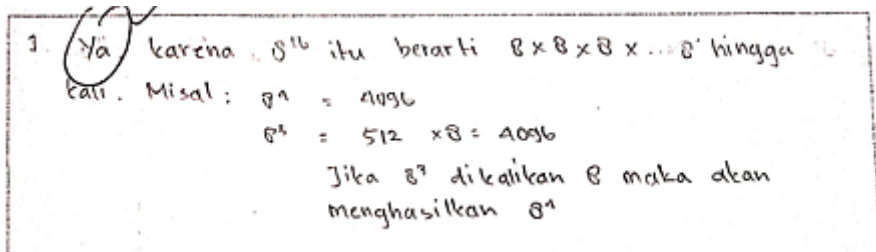 3. Ya karena 8¹⁶ itu berarti 8 x 8 x 8 x ... 8 hingga 16
kali. Misal : 8⁴ = 4096
8³ = 512 x 8 = 4096
Jika 8³ dikalikan 8 maka akan
menghasilkan 8⁴